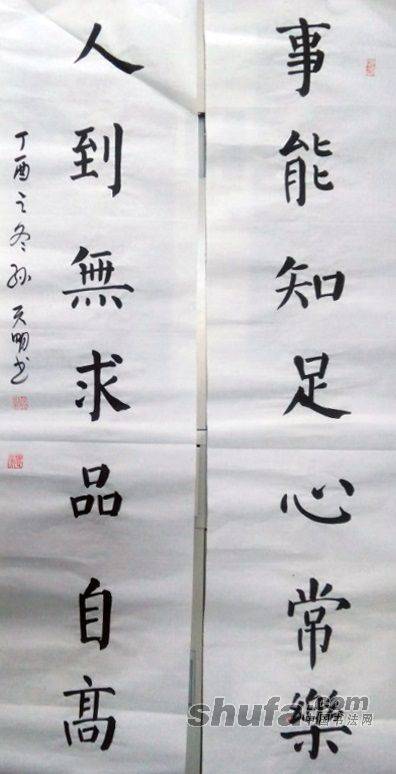 事能知足心常樂
人到無求品自高
丁酉之冬孙天明书
shufa.com
中国书法网